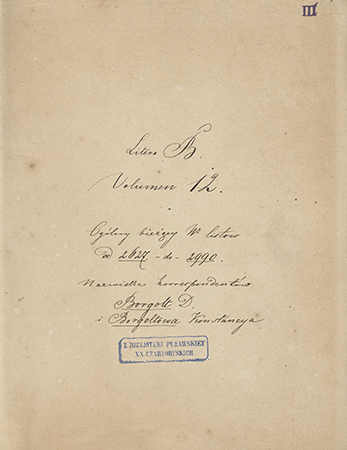 III
Litera B.
Volumen 12.
Ogólny bieżący No listów
od 2627 - do - 2990.
Nazwiska korrespondentów
Borgolt D.
i Borgoltowa Konstancya
Z BIBLIOTEKI PUŁAWSKIEJ
XX. CZARTORYSKICH.